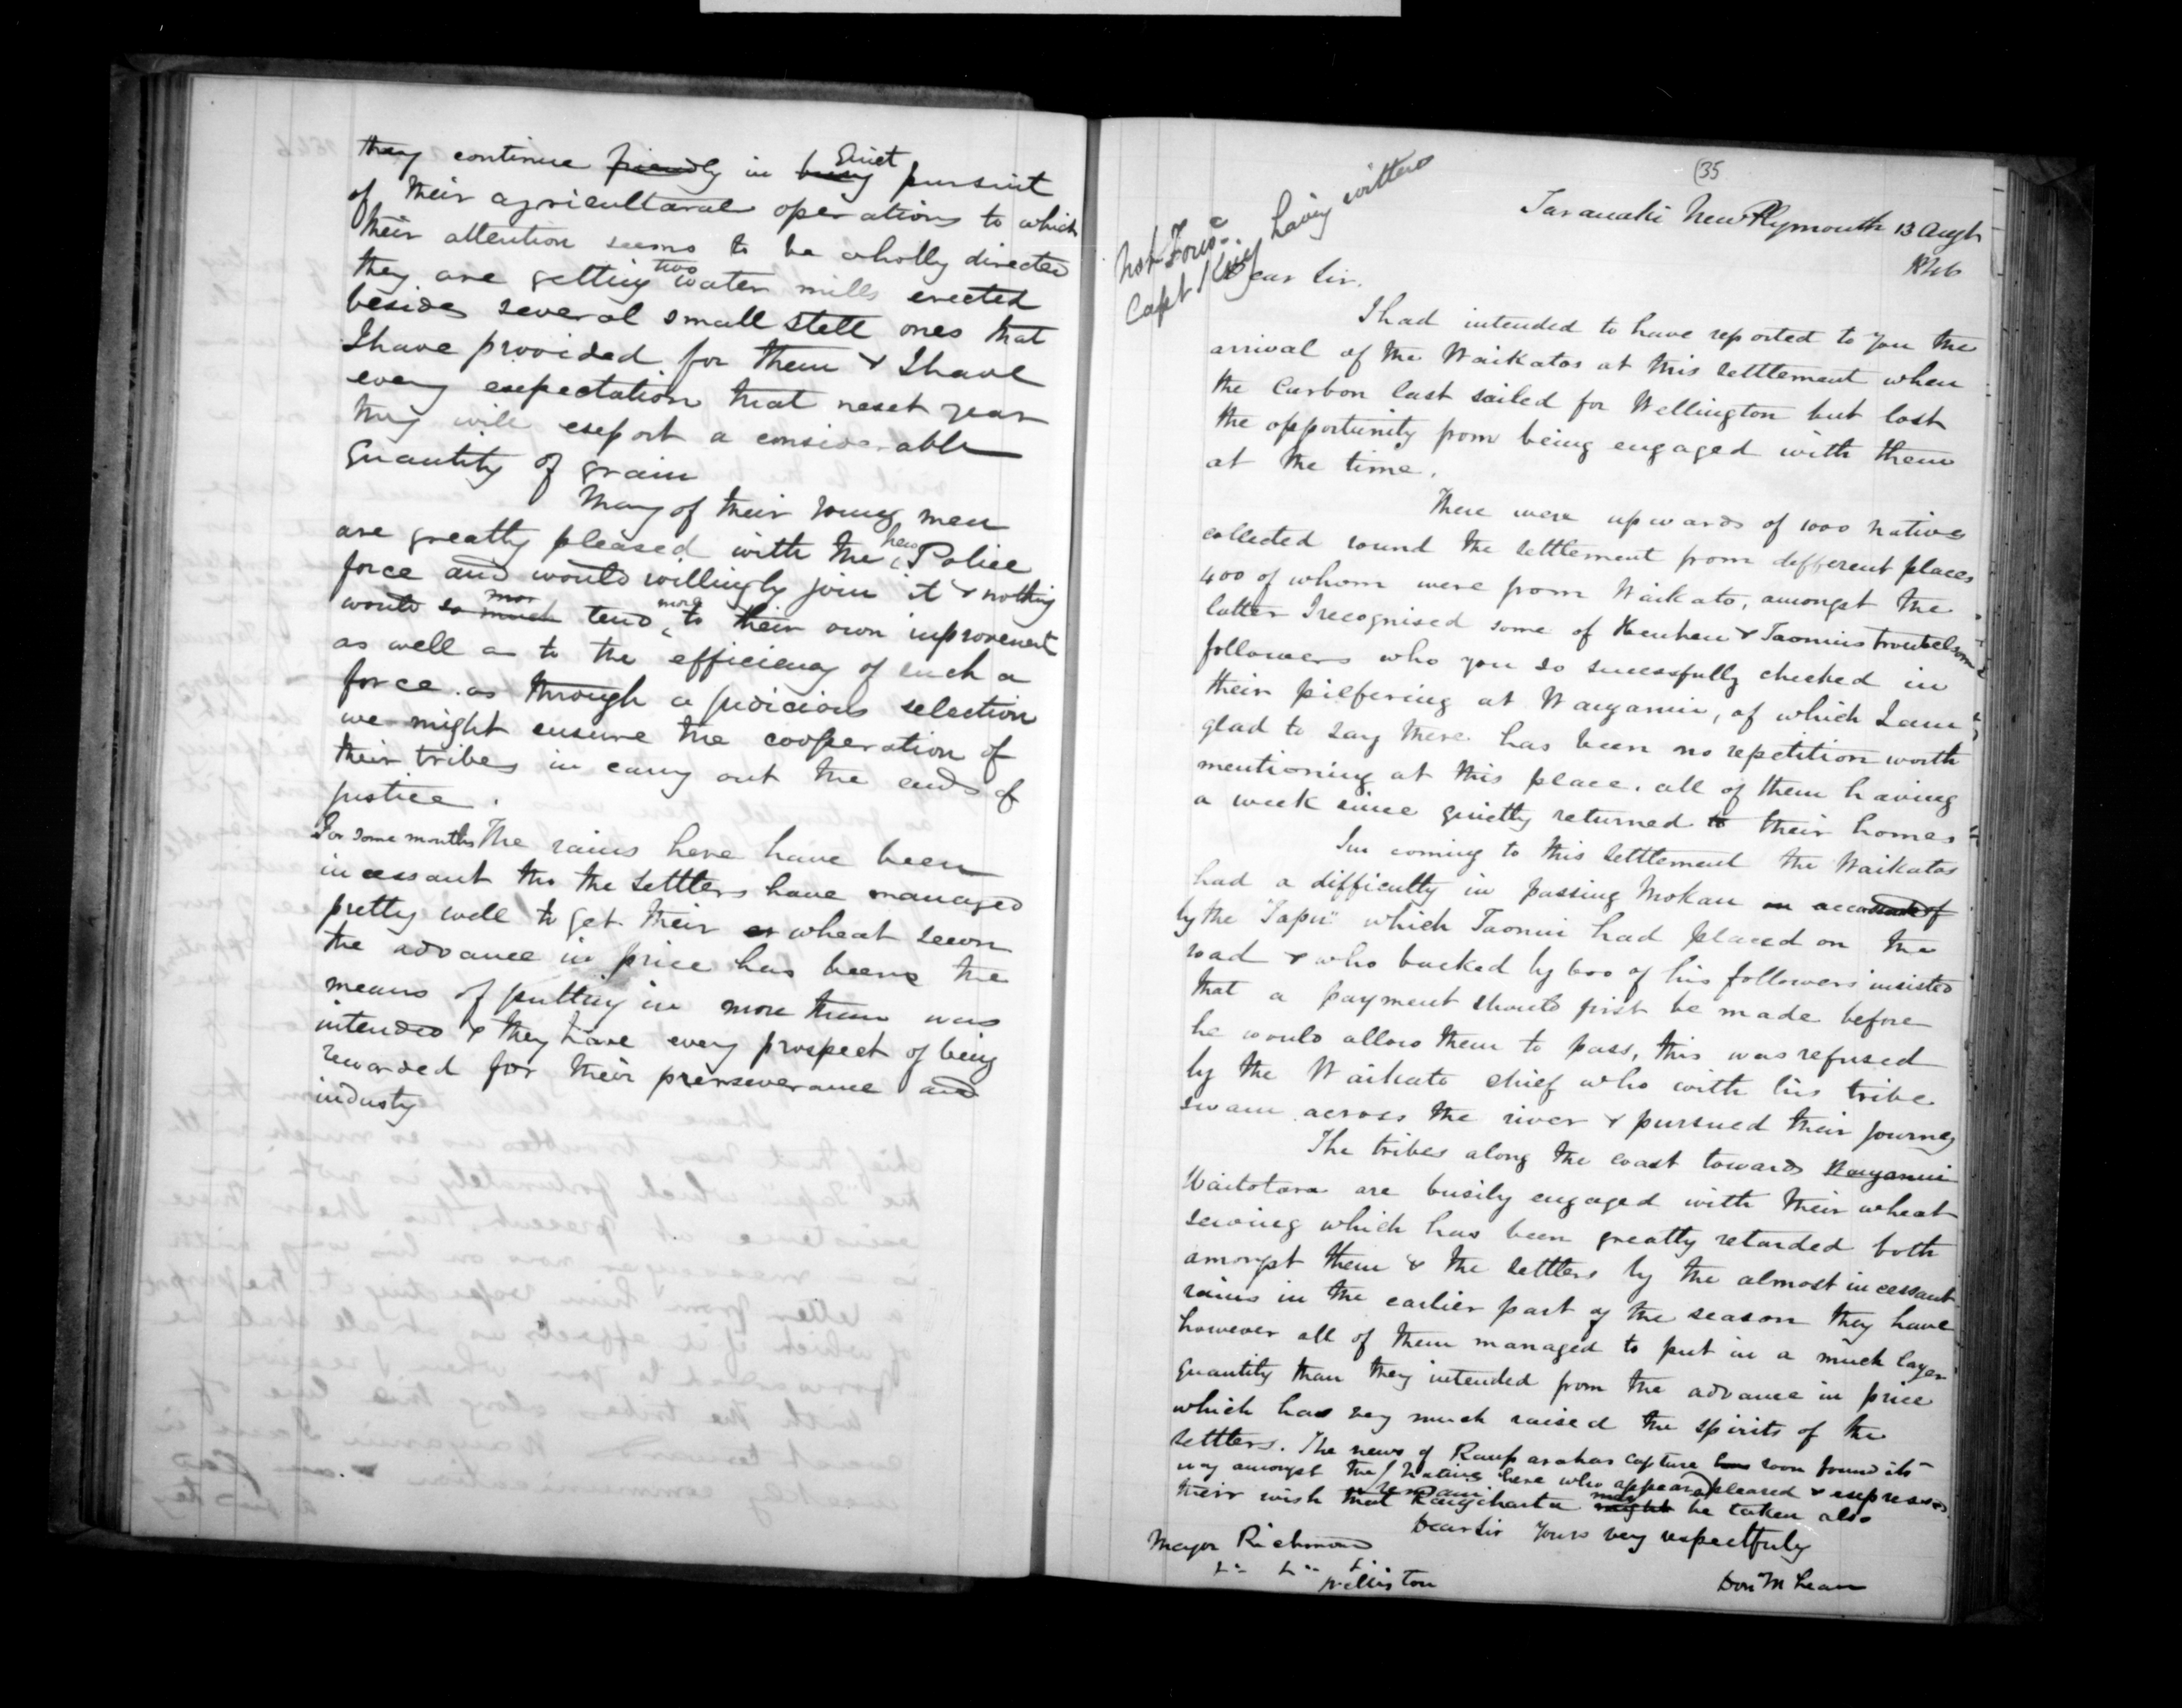 they continue friendly in busy Quiet pursuit
of their agricultural operations to which
their attention seems to be wholly directed
they are getting two water mills erected
besides several small steel ones that
I have provided for them & I have
every expectation that next year
they will export a considerable
quantity of grain
Many of their young men
are greatly pleased with the new Police
force and would willingly join it & nothing
would so much more tend more to their own improvement
as well as to the efficiency of such a
force. as through a judicious selection
we might ensure the cooperation of
their tribes in carry out the ends of
justice.
For some months The rains here have been
incessant tho the settlers have managed
pretty well to get their wheat sown
the advance in price has been the
means of putting in more than was
intended & they have every prospect of being
rewarded for their prerseverance and
industy
(35
Taranaki New Plymouth 13 Augt
1846
Not Forwd. having written
Capt King
Dear Sir.
I had intended to have reported to you the
arrival of the Waikatos at this settlement when
the Carbon last sailed for Wellington but lost
the opportunity from being engaged with them
at the time.
There were upwards of 1000 natives
collected round the settlement from different places
400 of whom were from Waikato, amongst the
latter I recognised some of Heuheu & Taonuis troubelsome
followers who you so sucessfully checked in
their pilfering at Wanganui, of which I am
glad to say there has been no repetition worth
mentioning at this place. all of them having
a week since quietly returned to their homes
In coming to this settlement the Waikatos
had a difficulty in passing Mokau on account of
by the "Tapu" which Taonui had placed on the
road & who backed by 600 of his followers insisted
that a payment should first be made before
he would allow them to pass, this was refused
by the Waikato chief who with his tribe
swam across the river & pursued their journey
The tribes along the coast towards Wanganui
Waitotara are busily engaged with their wheat
sewing which has been greatly retarded both
amongst them & the settlers by the almost incessant
rains in the earlier part of the season they have
however all of them managed to put in a much larger
quantity than they intended from the advance in price
which has very much raised the spirits of the
settlers. The news of Rauparahas capture has soon found its
way amongst the Natives here who appeared pleased & expressed
their wish that Rangihaeta might may be taken also
Dear Sir Yours very respectfuly
Major Richmond
Wellington
Don McLean